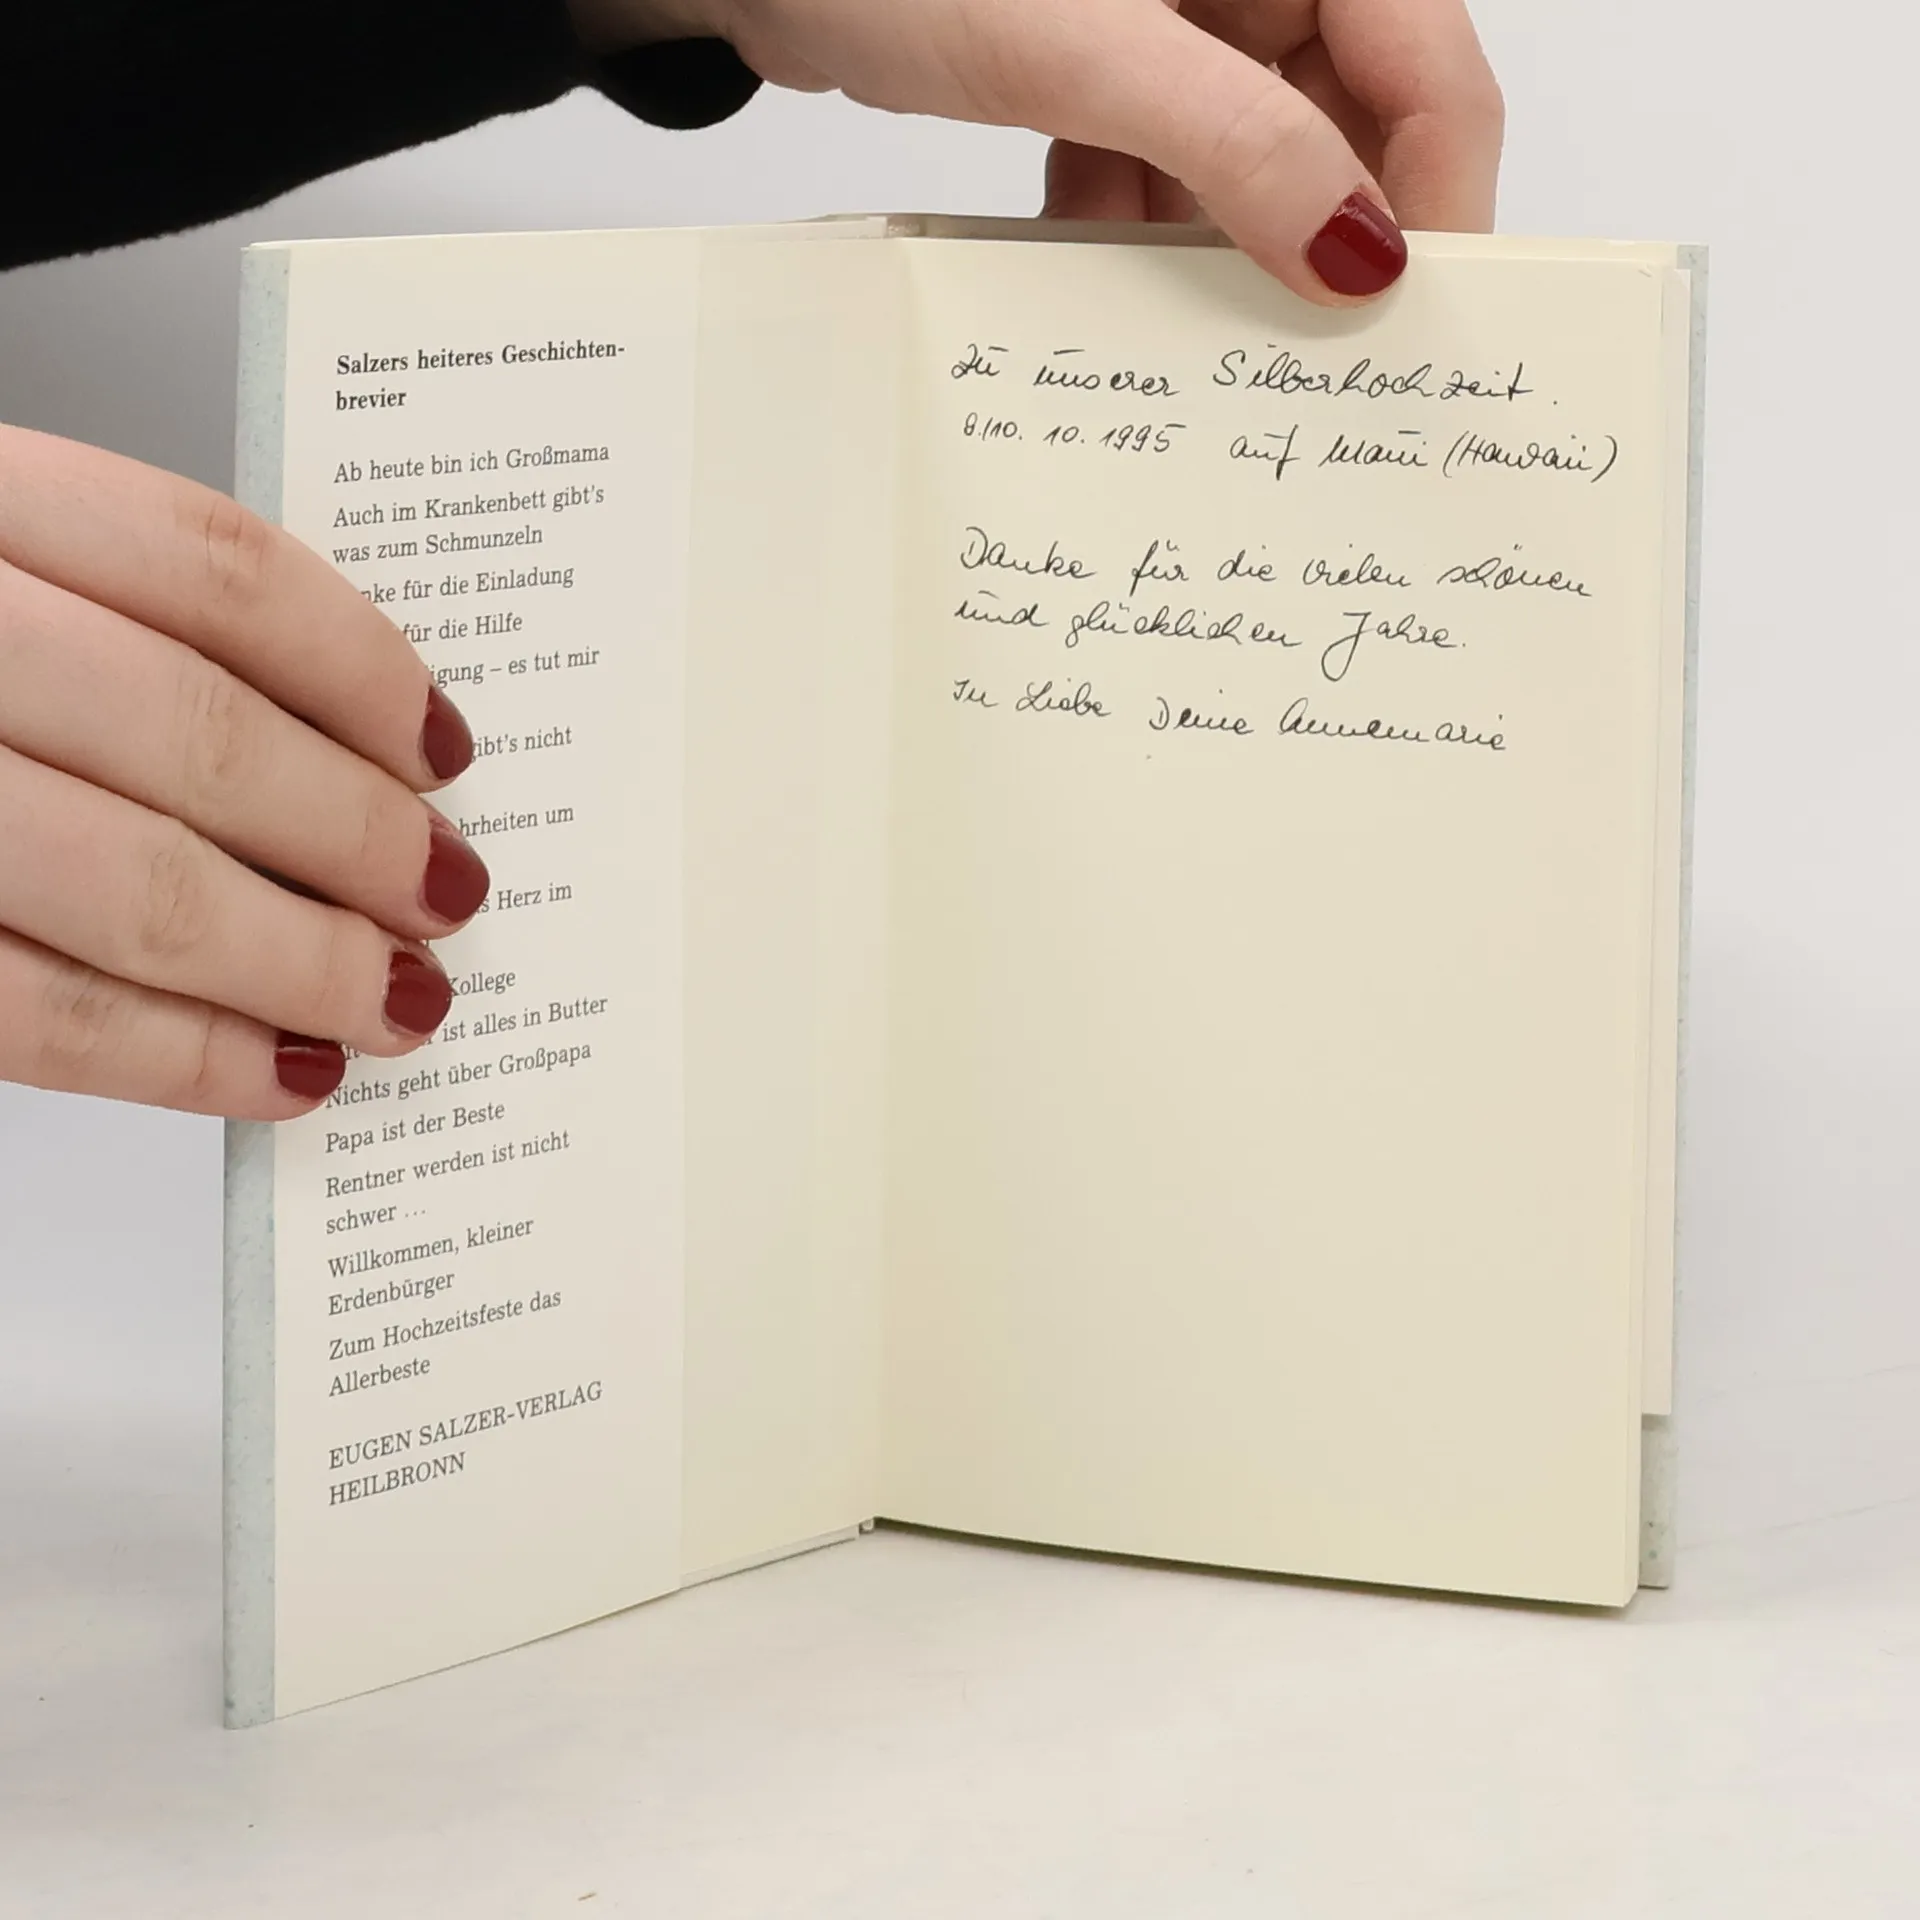 Salzers heiteres Geschichten-
brevier
Ab heute bin ich Großmama
Auch im Krankenbett gibt's
was zum Schmunzeln
nke für die Einladung
für die Hilfe
igung – es tut mir
gibt's nicht
hrheiten um
s Herz im
Kollege
ist alles in Butter
Nichts geht über Großpapa
Papa ist der Beste
Rentner werden ist nicht
schwer ...
Willkommen, kleiner
Erdenbürger
Zum Hochzeitsfeste das
Allerbeste
EUGEN SALZER-VERLAG
HEILBRONN
Zu unserer Silberhochzeit.
8./10. 10. 1995 auf Maui (Hawaii)
Danke für die vielen schönen
und glücklichen Jahre.
In Liebe Deine Annemarie